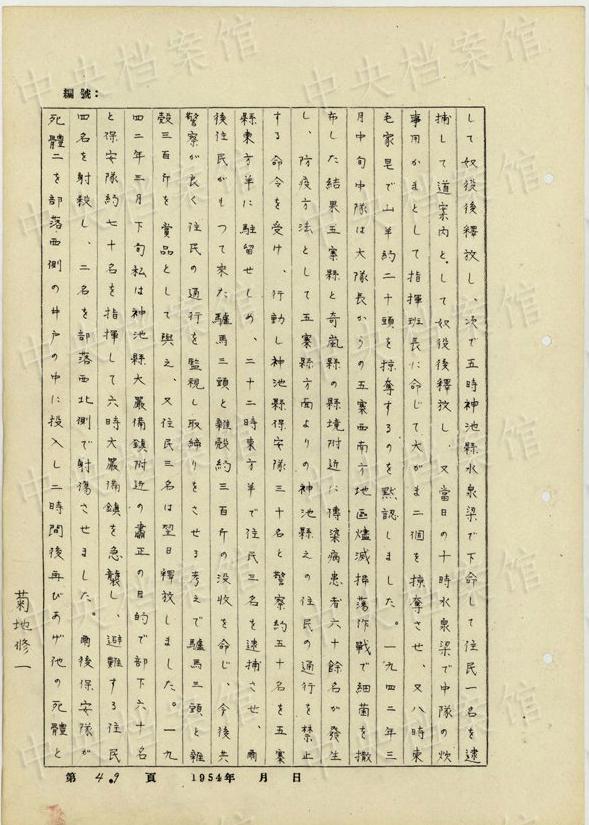 編號：
して奴役後釋放し、次で五時神池縣水泉梁で下命して住民一名を逮
捕して道案内として奴役後釋放し、又當日の十時水泉梁で中隊の炊
事用かまとして指揮班長に命じて大がま二個を掠奪させ、又八時東
毛家皂で山羊約二十頭を掠奪するのを黙認しました。一九四二年三
月中旬中隊は大隊長からの五寨西南方地區燼滅掃蕩作戰で細菌を撒
布した結果五寨縣と奇嵐縣の縣境附近に傳染病患者六十餘名が發生
し、防疫方法として五寨縣方面よりの神池縣えの住民の通行を禁止
する命令を受け、行動し神池縣保安隊三十名と警察約五十名を五寨
縣東方羊に駐留せしめ、二十二時東方羊で住民三名を逮捕させ、爾
後住民がもつて來た驢馬三頭と雜穀約三百斤の没收を命じ、今後共
警察が良く住民の通行を監視し取締りをさせる考えで驢馬三頭と雜
穀三百斤を賞品として與え、又住民三名は翌日釋放しました。一九
四二年三月下旬私は神池縣大嚴備鎮附近の肅正の目的で部下六十名
と保安隊約七十名を指揮して六時大嚴備鎮を急襲し、避難する住民
四名を射殺し、二名を部落西北側で射傷させました。爾後保安隊が
死體二を部落西側の井戸の中に投入し二時間後再びあげ他の死體と
菊地修一
第 49 頁 1954年 月 日
中央档案馆